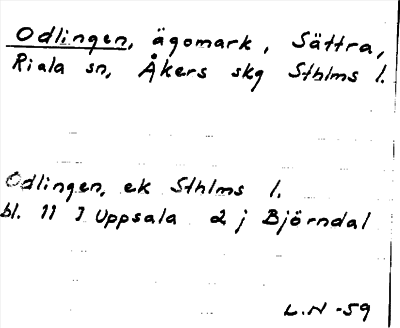 Odlingen, ägomark, Sättra,
Riala sn, Åkers skg Sthlms l.
Odlingen, ek Sthlms l.
bl. 11 I Uppsala 2 j Björndal
L.N -59